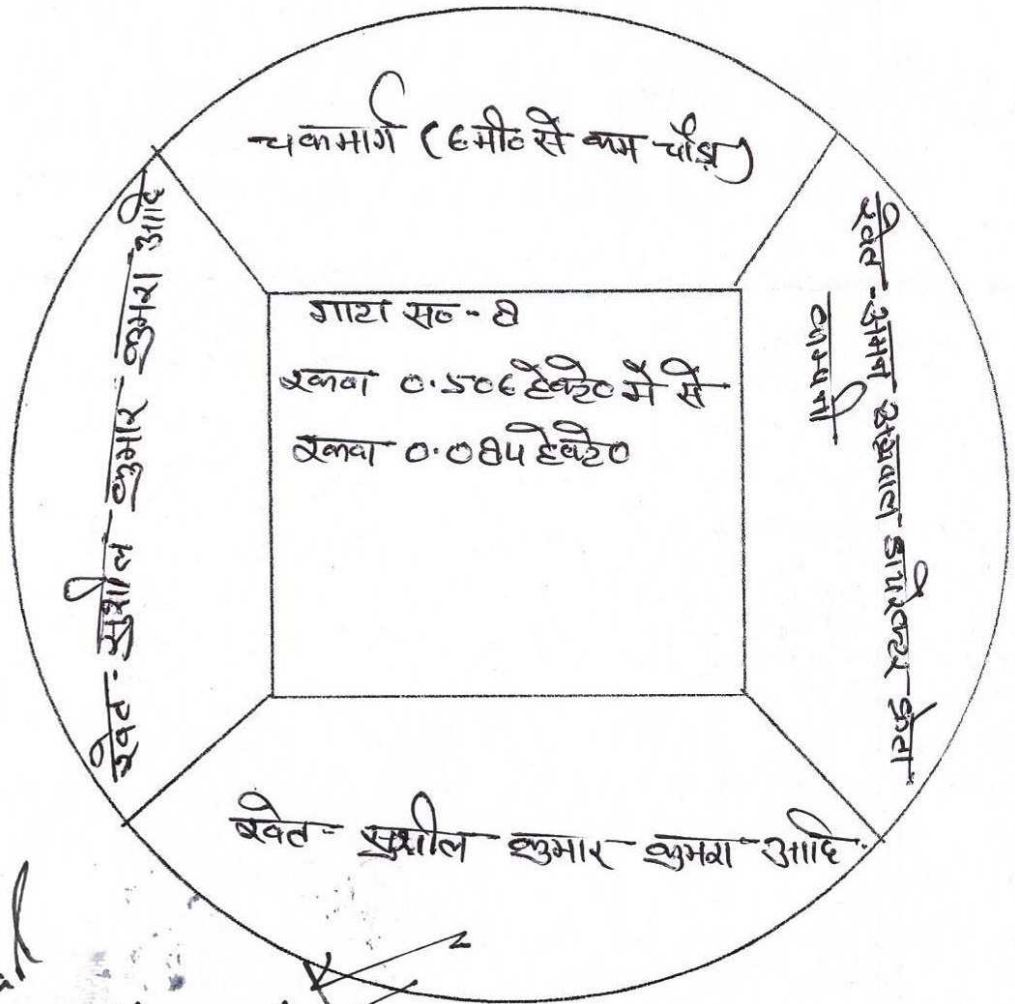 चकमार्ग (6मी० से कम चौड़ा)
खेत - सुशील कुमार कुमरा आदि
गाटा स० - 8
रकवा 0.506 हेक्टे० में से
रकवा 0.084 हेक्टे०
खेत - अमन अग्रवाल डायरेक्टर क्रेता
कम्पनी
खेत - सुशील कुमार कुमरा आदि